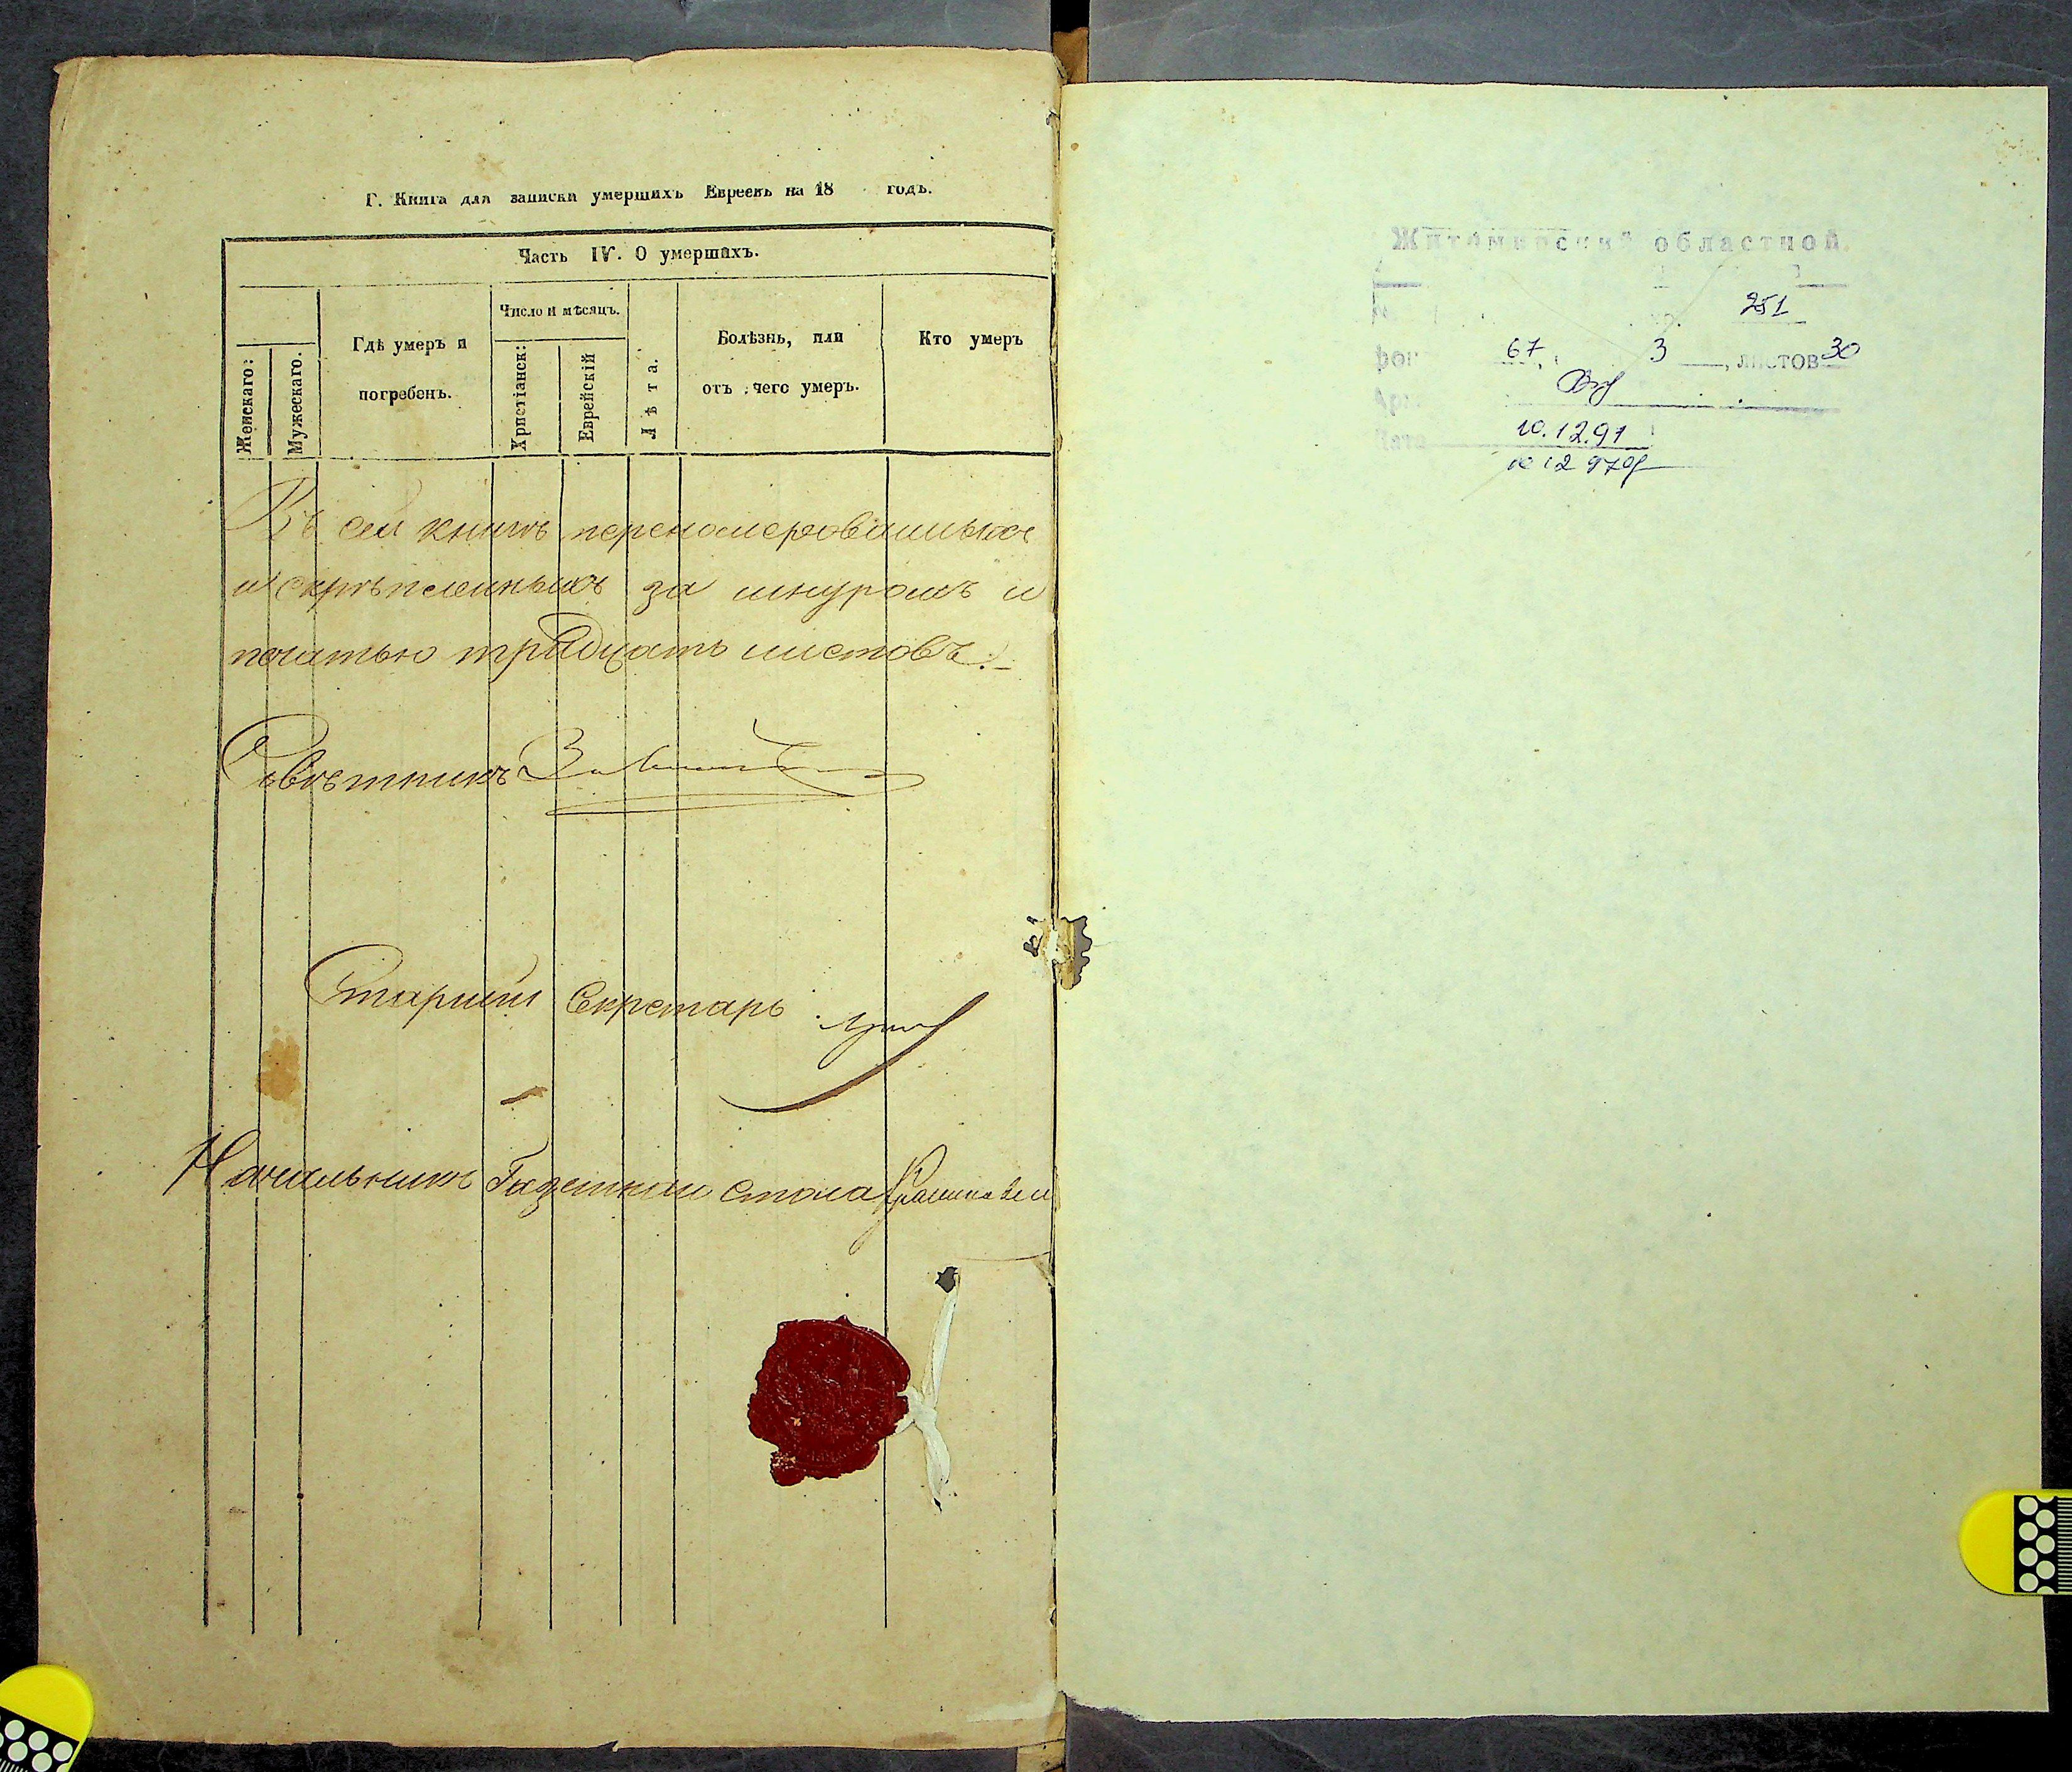 Г. Книга для записки умершихъ Евреевъ на 18 годъ.
Часть IV. О умершихъ.
Женскаго:
Мужескаго.
Гдѣ умеръ и
погребенъ.
Число и мѣсяцъ.
Христіанск:
Еврейскій
Лѣта.
Болѣзнь, или
отъ чего умеръ.
Кто умеръ
Въ сей книгѣ перенамерованныхъ
и скрѣпленныхъ за шнуромъ и
печатью тридцать листовъ.
Совѣтникъ
Старшій Секретарь
Начальникъ Газетнаго стола
Житомирский областной
251
фон 67, 3, листов 30
Арх
Дата 10.12.91